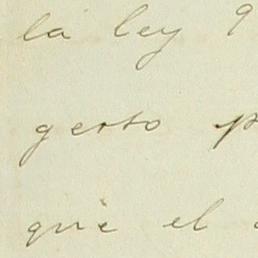 la ley
gesto
que el